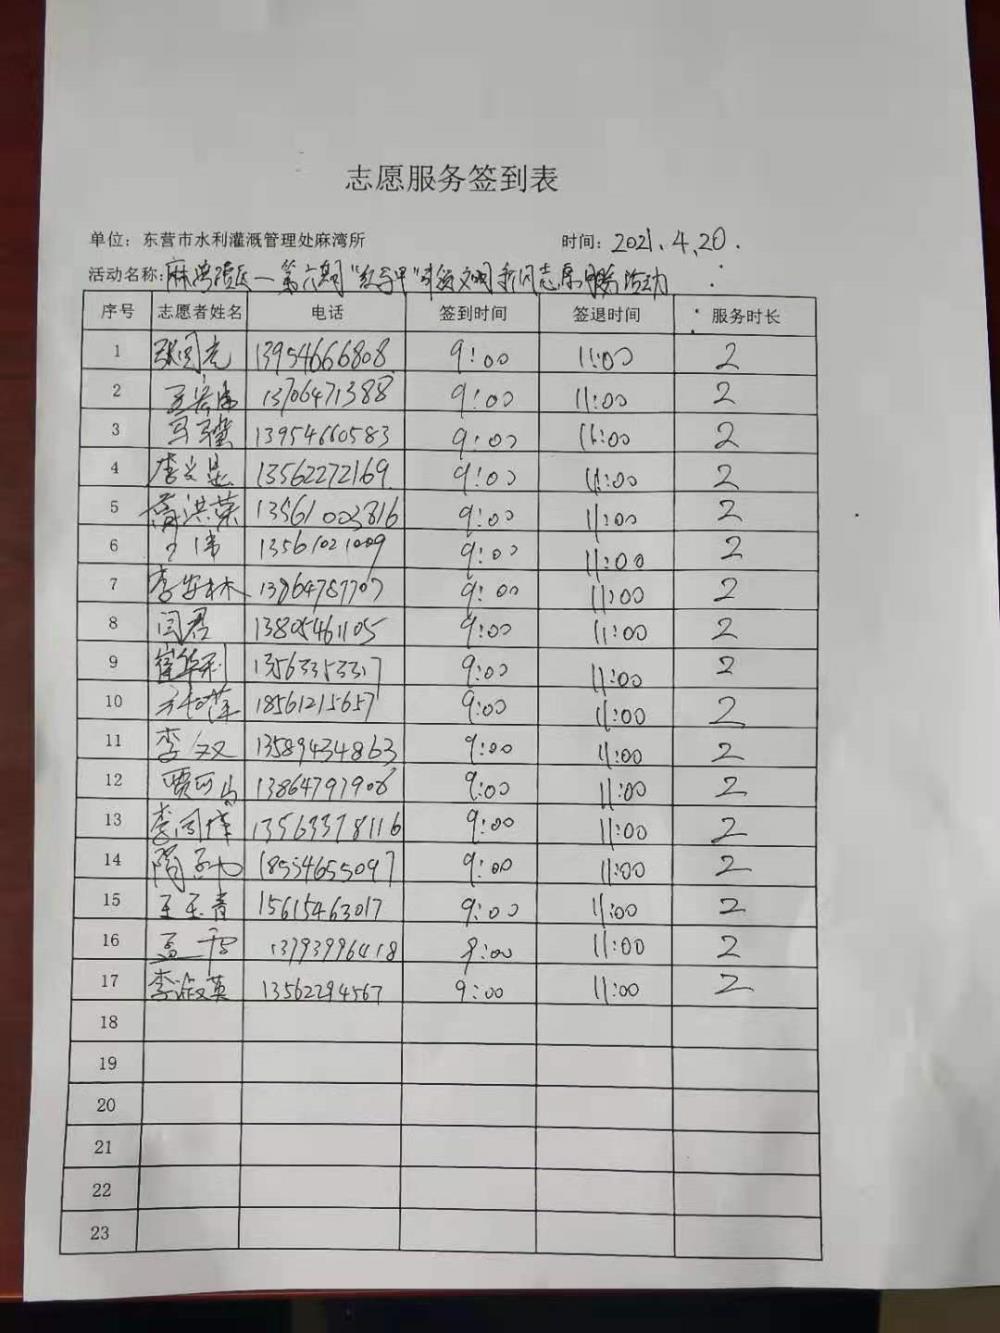 志愿服务签到表
单位：东营市水利灌溉管理处麻湾所 时间：2021.4.20.
活动名称：麻湾 一第六期"红马甲"引领文明新风志愿服务活动
序号 志愿者姓名 电话 签到时间 签退时间 服务时长
1 张同亮 13954666808 9:00 11:00 2
2 13706471388 9:00 11:00 2
3 马骥 13954660583 9:00 11:00 2
4 李 13562272169 9:00 11:00 2
5 洪荣 13561003816 9:00 11:00 2
6 伟 13561021009 9:00 11:00 2
7 李安林 13864787707 9:00 11:00 2
8 闫君 13805461105 9:00 11:00 2
9 崔华利 13563353317 9:00 11:00 2
10 18561215657 9:00 11:00 2
11 李双 13589434863 9:00 11:00 2
12 贾 13864797908 9:00 11:00 2
13 李同 13563378116 9:00 11:00 2
14 陶 18554655097 9:00 11:00 2
15 王玉青 15615463017 9:00 11:00 2
16 孟 13793996418 9:00 11:00 2
17 李淑英 13562294567 9:00 11:00 2
18
19
20
21
22
23